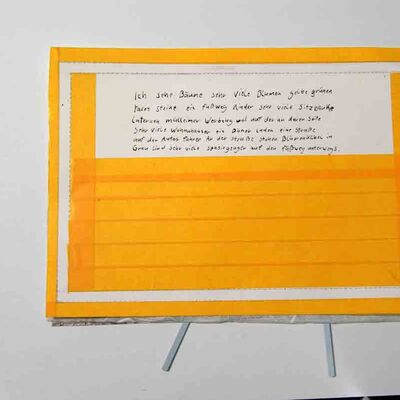 Ich sehe Bäume sehr viele Blumen gelbe grünen
steine ein Fußweg Kinder sehr viele Sitzbänke
Laternen mülleimer Werbung und auf der an deren Seite
Sehr viele Wohnhäuser ein Döner Laden eine Straße
auf den Autos fahren An der Straße stehen Blumenkübel in
Grau sind sehr viele spaziergänger auf den Fußweg unterwegs.